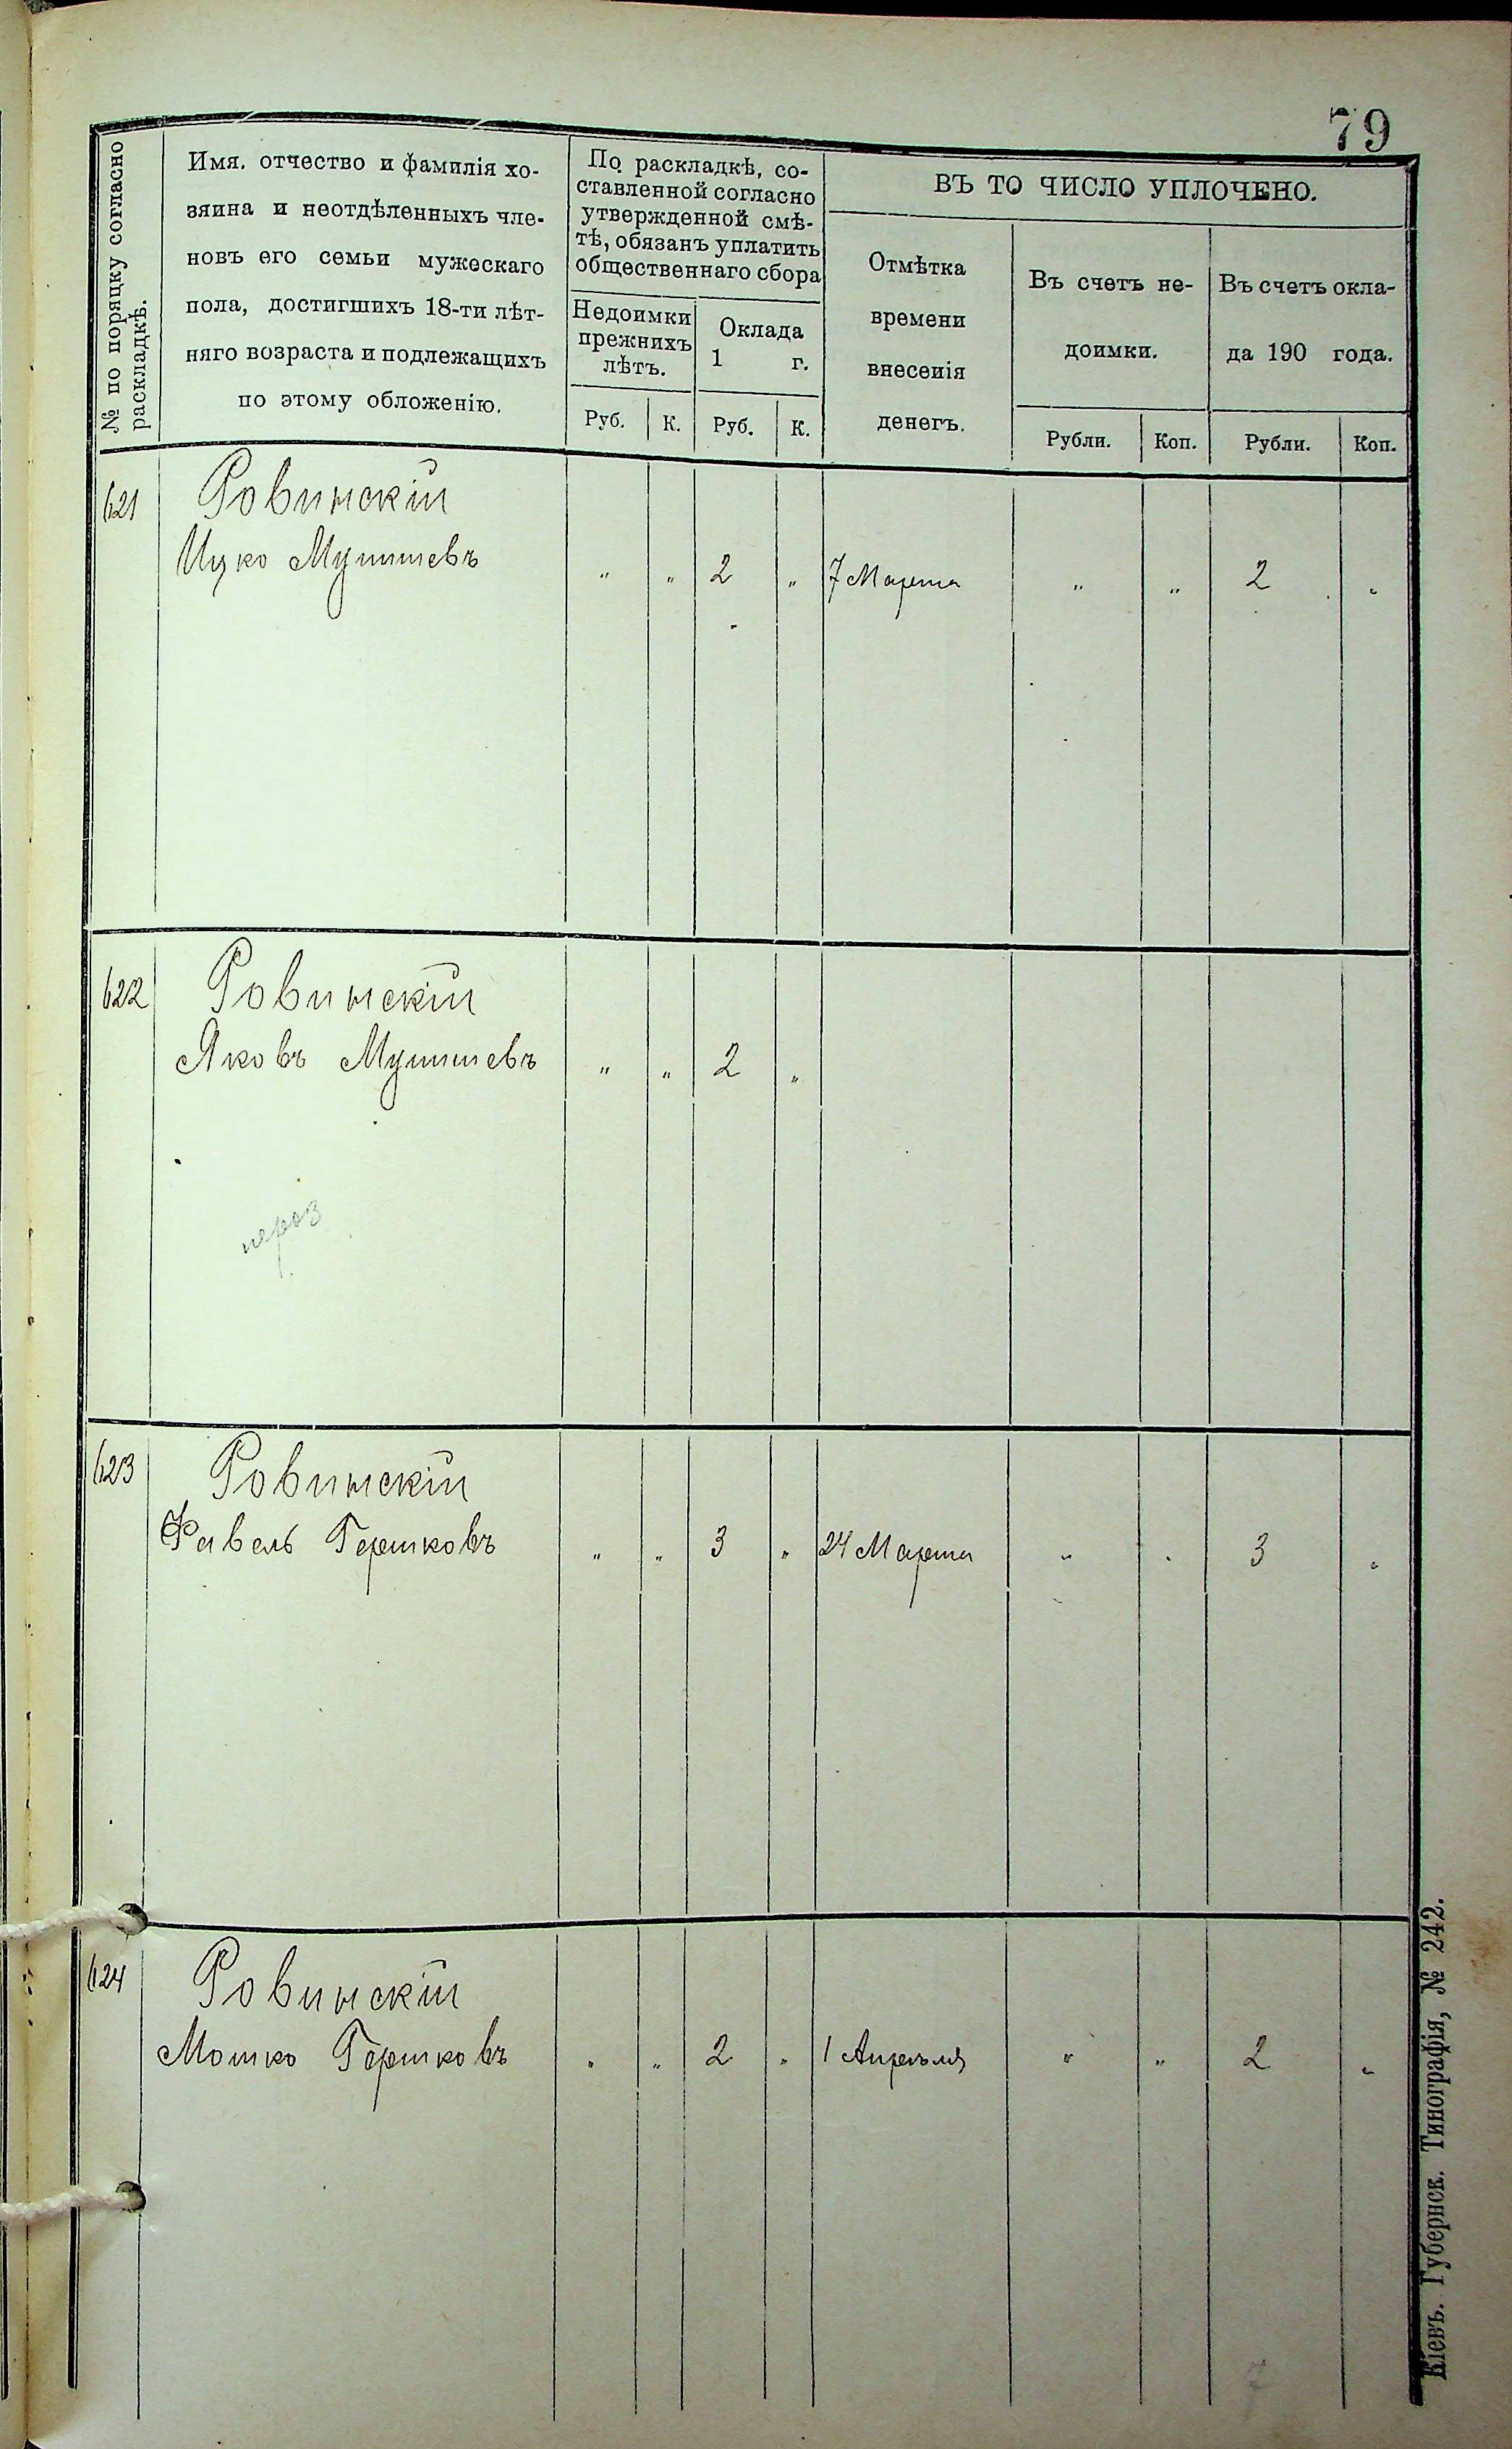 79
№ по поряцку согласно
раскладкѣ.
Имя. отчество и фамилія хо-
зяина и неотдѣленныхъ чле-
новъ его семьи мужескаго
пола, достигшихъ 18-ти лѣт-
няго возраста и подлежащихъ
по этому обложенію.
По раскладкѣ, со-
ставленной согласно
утвержденной смѣ-
тѣ, обязанъ уплатить
общественнаго сбора
Недоимки
прежнихъ
лѣтъ.
Руб. К.
Оклада
1 г.
Руб. К.
ВЪ ТО ЧИСЛО УПЛОЧЕНО.
Отмѣтка
времени
внесенія
денегъ.
Въ счетъ не-
доимки.
Рубли. Коп.
Въ счетъ окла-
да 190 года.
Рубли. Коп.
621 Ровинскій
Ицко Мунишевъ " " 2 " 7 Марта " " 2 "
622 Ровинскій
Яковъ Мунишевъ " " 2 "
623 Ровинскій
Фавель Гершковъ " " 3 " 24 Марта " " 3 "
624 Ровинскій
Мошко Гершковъ " " 2 " 1 Апрѣля " " 2 "
7
Кіевъ. Губернск. Типографія, № 242.